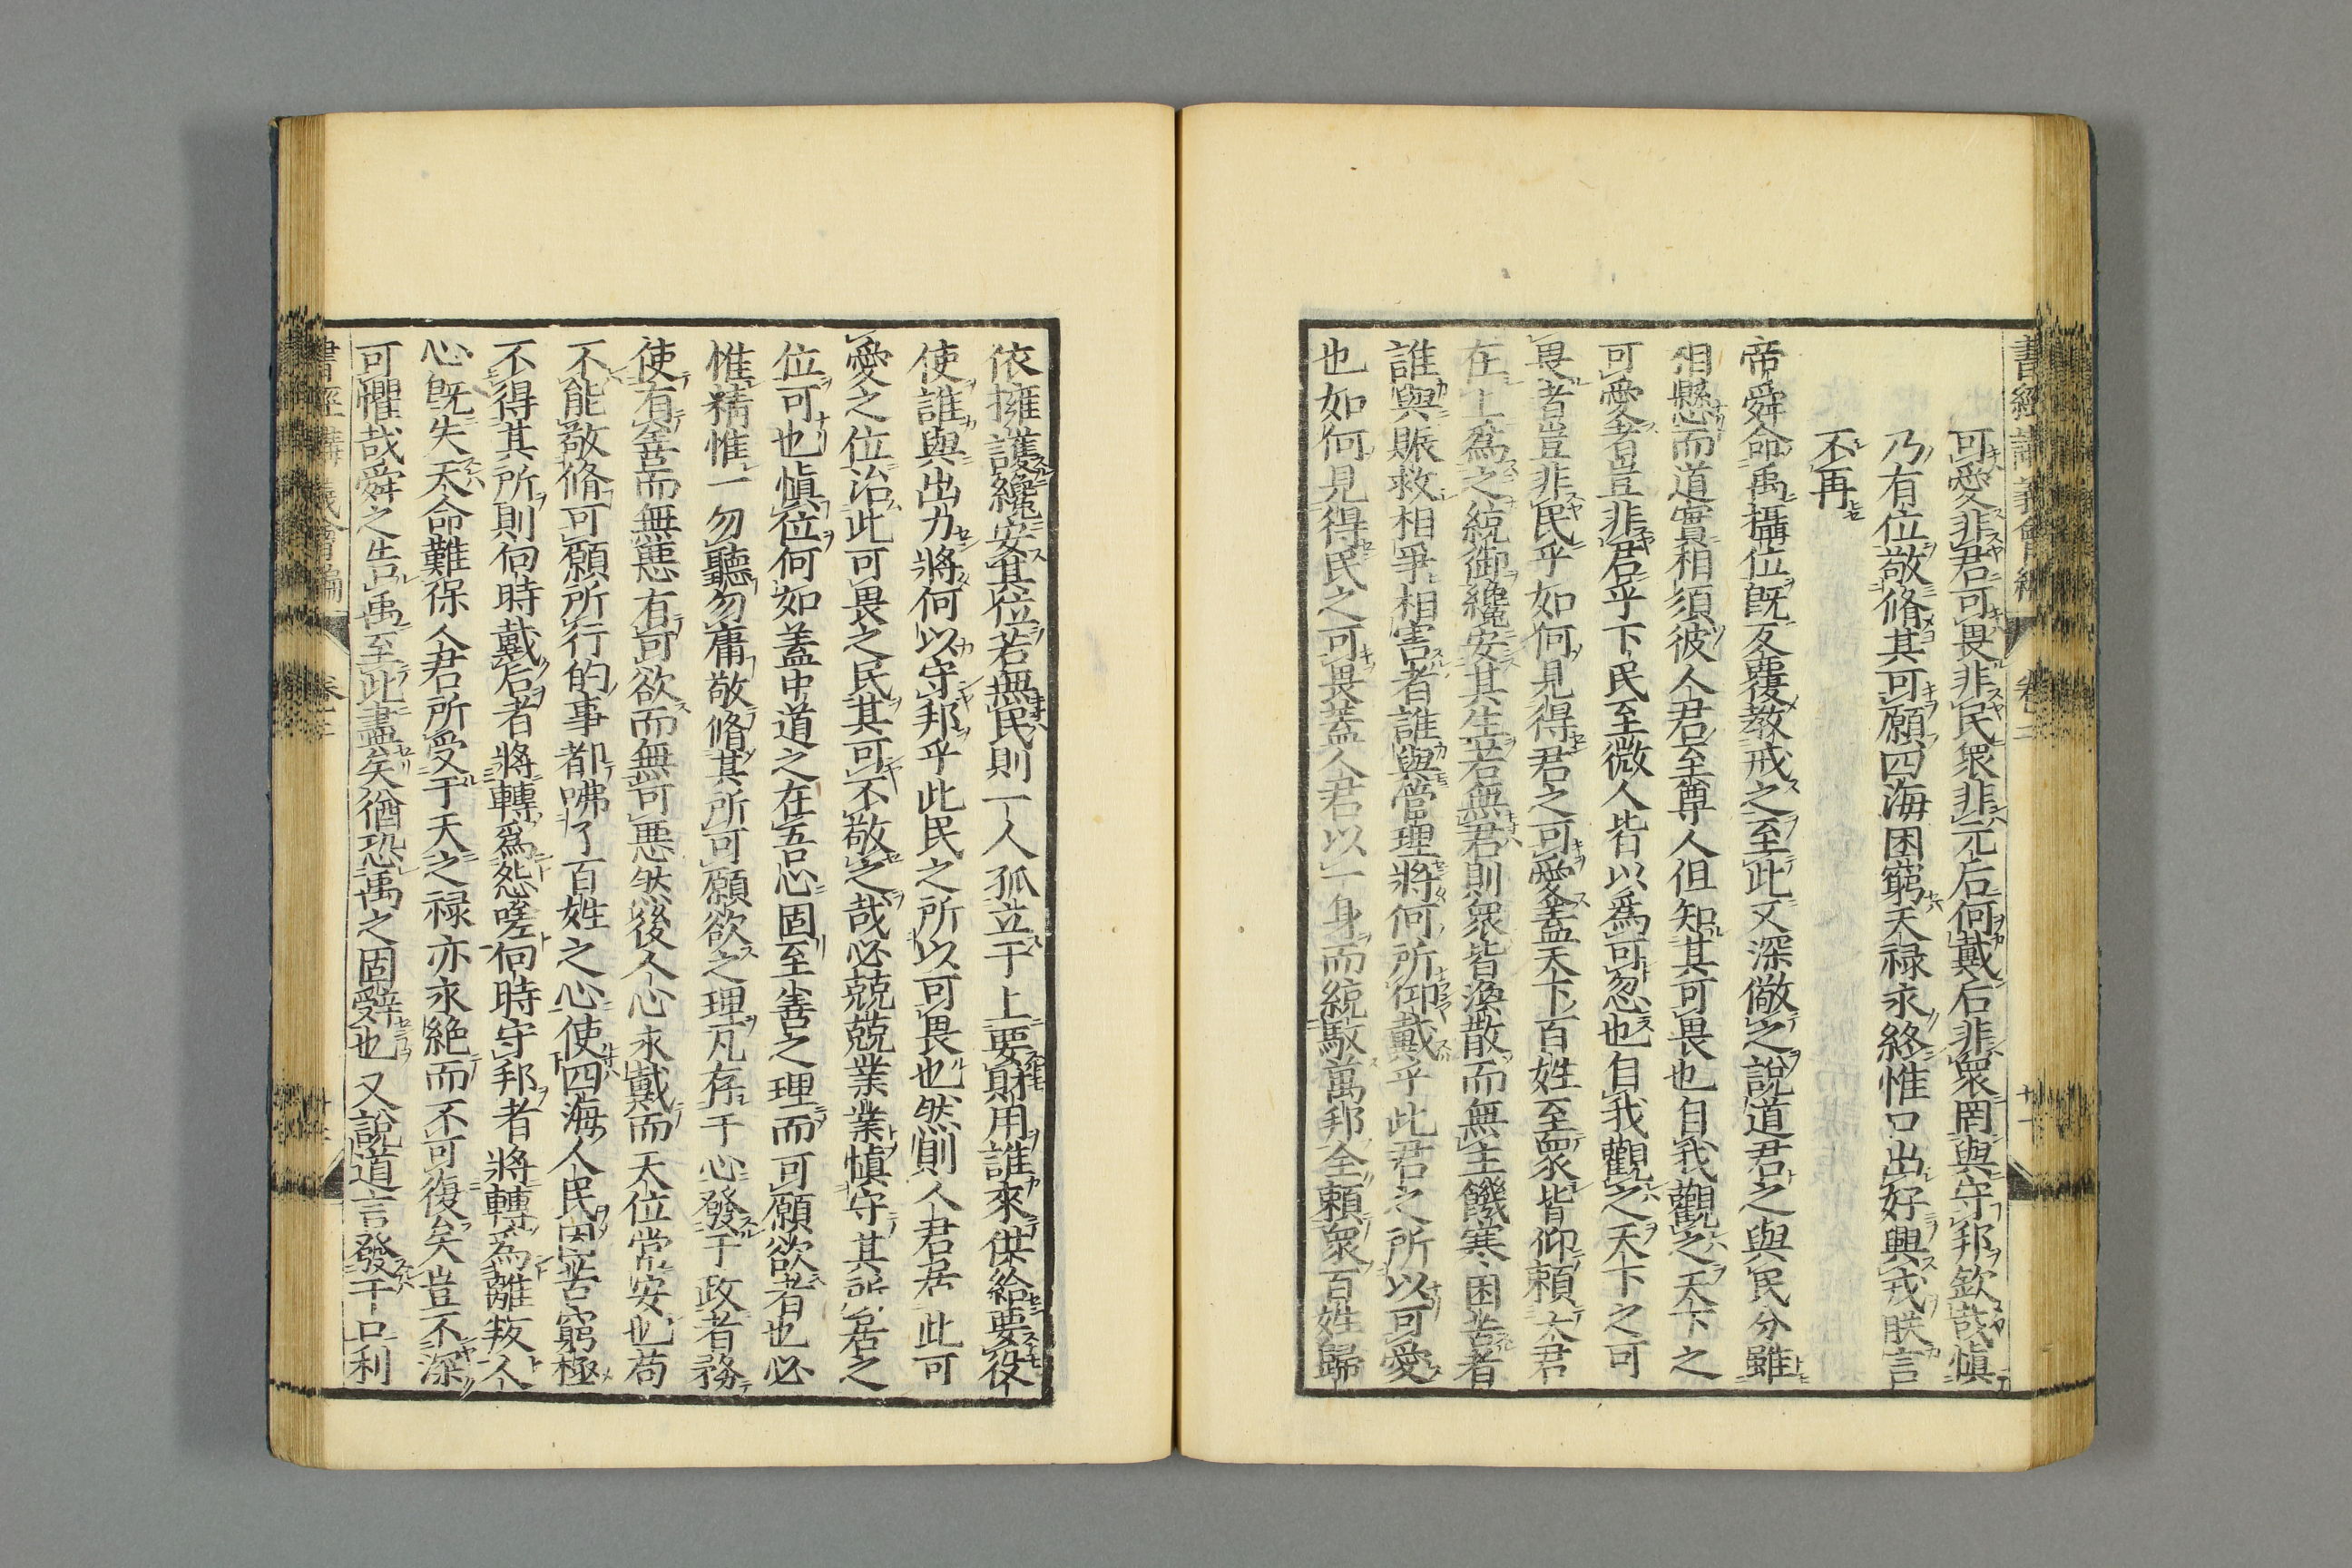 書經講義會編 卷二 十一
可愛非君可畏非民衆非元后何戴后非衆罔與守邦欽哉愼
乃有位敬脩其可願四海困窮天祿永終惟口出好興戎朕言
不再
帝舜命禹攝位旣反覆教戒之至此又深儆之說道君之與民分雖
相懸而道實相須彼人君至尊人但知其可畏也自我觀之天下之
可愛者豈非君乎下民至微人皆以爲可忽也自我觀之天下之可
畏者豈非民乎如何見得君之可愛蓋天下百姓至衆皆仰賴大君
在上爲之統御纔安其生若無君則衆皆渙散而無主饑寒困苦者
誰與賑救相爭相害者誰與管理將何所仰戴乎此君之所以可愛
也如何見得民之可畏蓋人君以一身而統馭萬邦全賴衆百姓歸
依擁護纔安其位若無民則一人孤立于上要財用誰來供給要役
使誰與出力將何以守邦乎此民之所以可畏也然則人君居此可
愛之位治此可畏之民其可不敬之哉必兢兢業業愼守其所居之
位可也愼位何如蓋中道之在吾心固至善之理而可願欲者也必
惟精惟一勿聽勿庸敬脩其所可願欲之理凡存于心發于政者務
使有善而無惡有可欲而無可惡然後人心永戴而天位常安也苟
不能敬脩可願所行的事都咈了百姓之心使四海人民困苦窮極
不得其所則向時戴后者將轉爲怨嗟向時守邦者將轉爲離叛人
心旣失天命難保人君所受于天之祿亦永絕而不可復矣豈不深
可懼哉舜之告禹至此盡矣猶恐禹之固辭也又說道言發于口利
書經講義會編 卷二